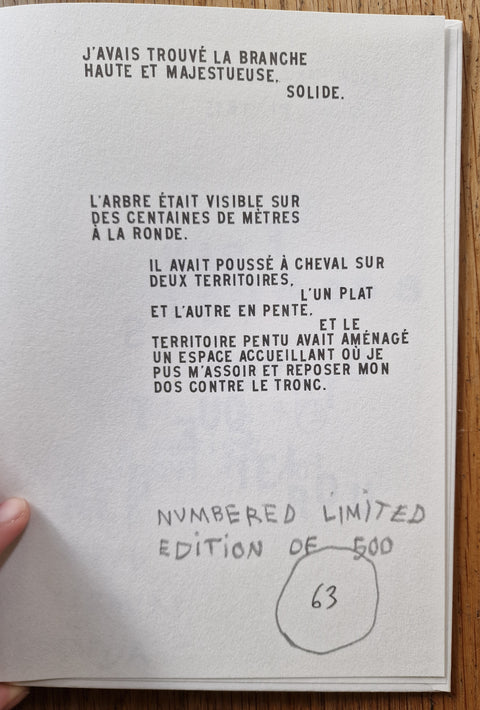 J'AVAIS TROUVÉ LA BRANCHE
HAUTE ET MAJESTUEUSE,
SOLIDE.
L'ARBRE ÉTAIT VISIBLE SUR
DES CENTAINES DE MÈTRES
À LA RONDE.
IL AVAIT POUSSÉ À CHEVAL SUR
DEUX TERRITOIRES,
L'UN PLAT
ET L'AUTRE EN PENTE.
ET LE
TERRITOIRE PENTU AVAIT AMÉNAGÉ
UN ESPACE ACCUEILLANT OÙ JE
PUS M'ASSOIR ET REPOSER MON
DOS CONTRE LE TRONC.
NUMBERED LIMITED
EDITION OF 500
63